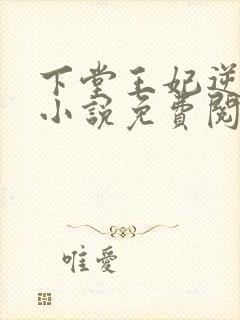 下堂王妃逆
小說免費閱
唯愛